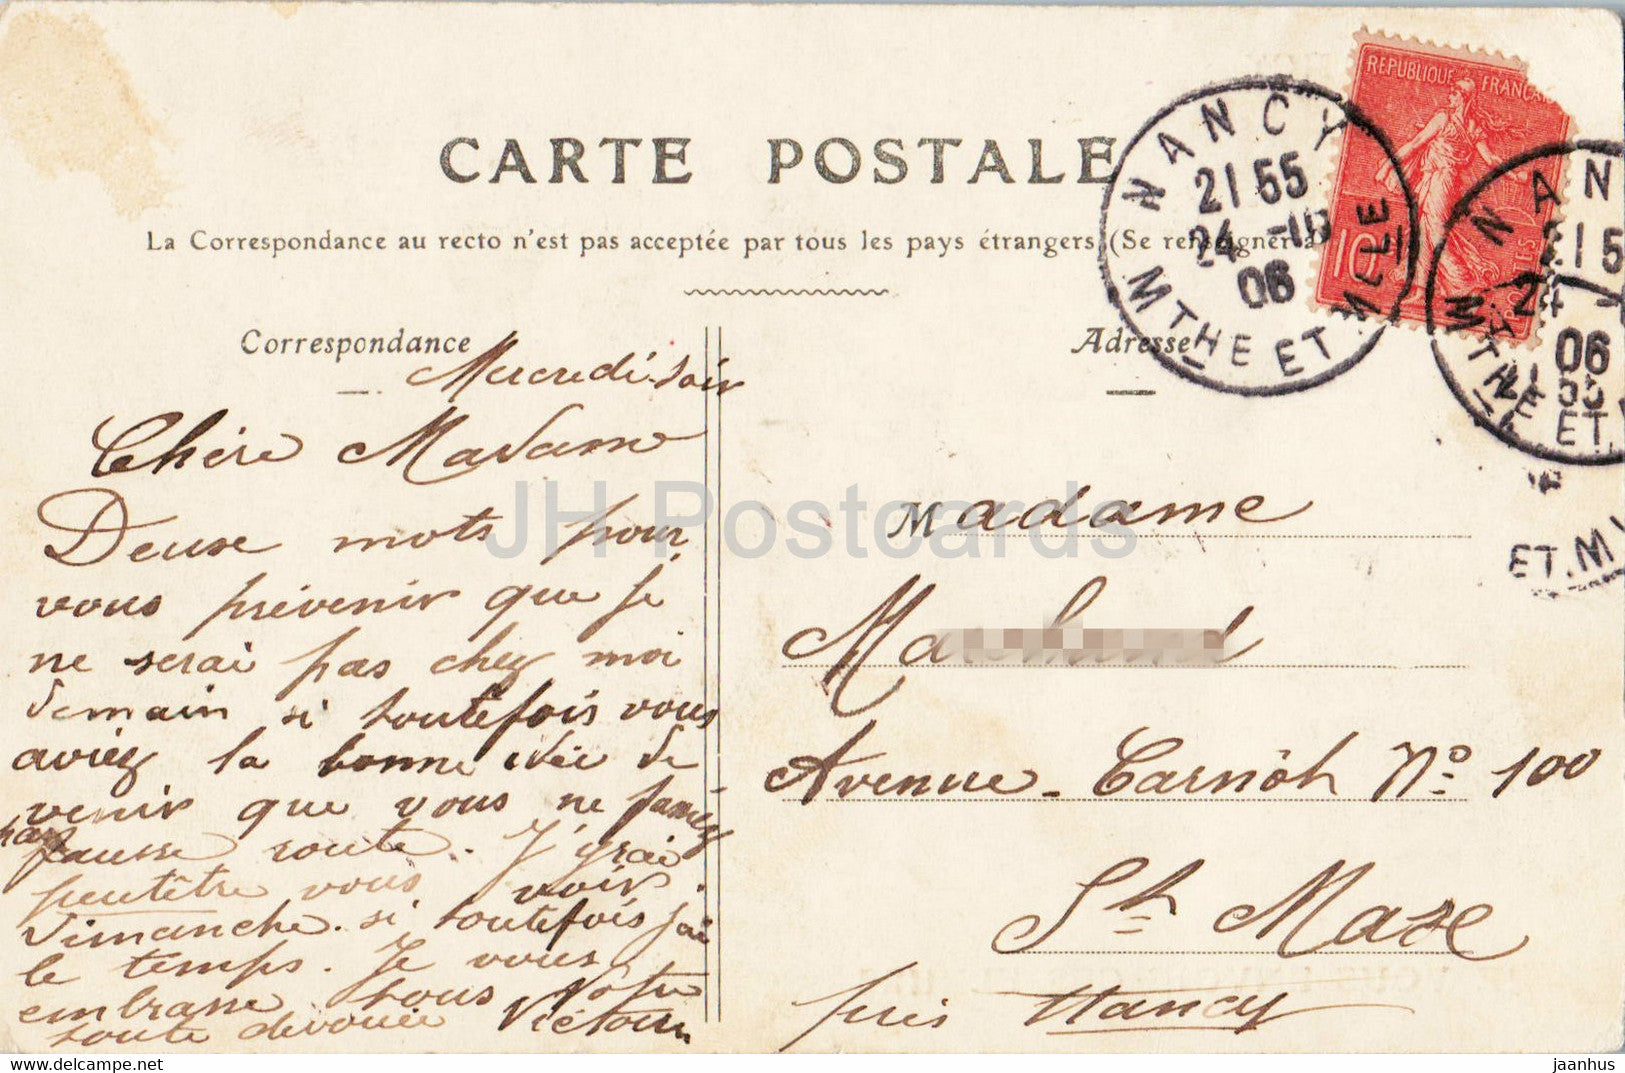 CARTE POSTALE
La Correspondance au recto n'est pas acceptée par tous les pays étrangers (Se renseigner à
Correspondance
Adresse
REPUBLIQUE FRANCAI
10
POSTES
NANCY
21 55
24 -10
06
MTHE ET MLLE
NAN
21 5
24
06
MTHE ET.
55
ET.MI
Mercredi-soir
Chère Madame
Deuse mots pour
vous prévenir que je
ne serai pas chez moi
demain si toutefois vous
aviez la bonne idée de
venir que vous ne famiez
pas
fausse route. J'yrai
peutêtre vous voir
dimanche. si toutefois j'ai
le temps. Je vous
embrasse tous Votre
toute dévouée
Madame
Avenue-Carnôh Nº 100
St Maxe
près Nancy
JH Postcards
www.jhpostcards.com
jaanhus